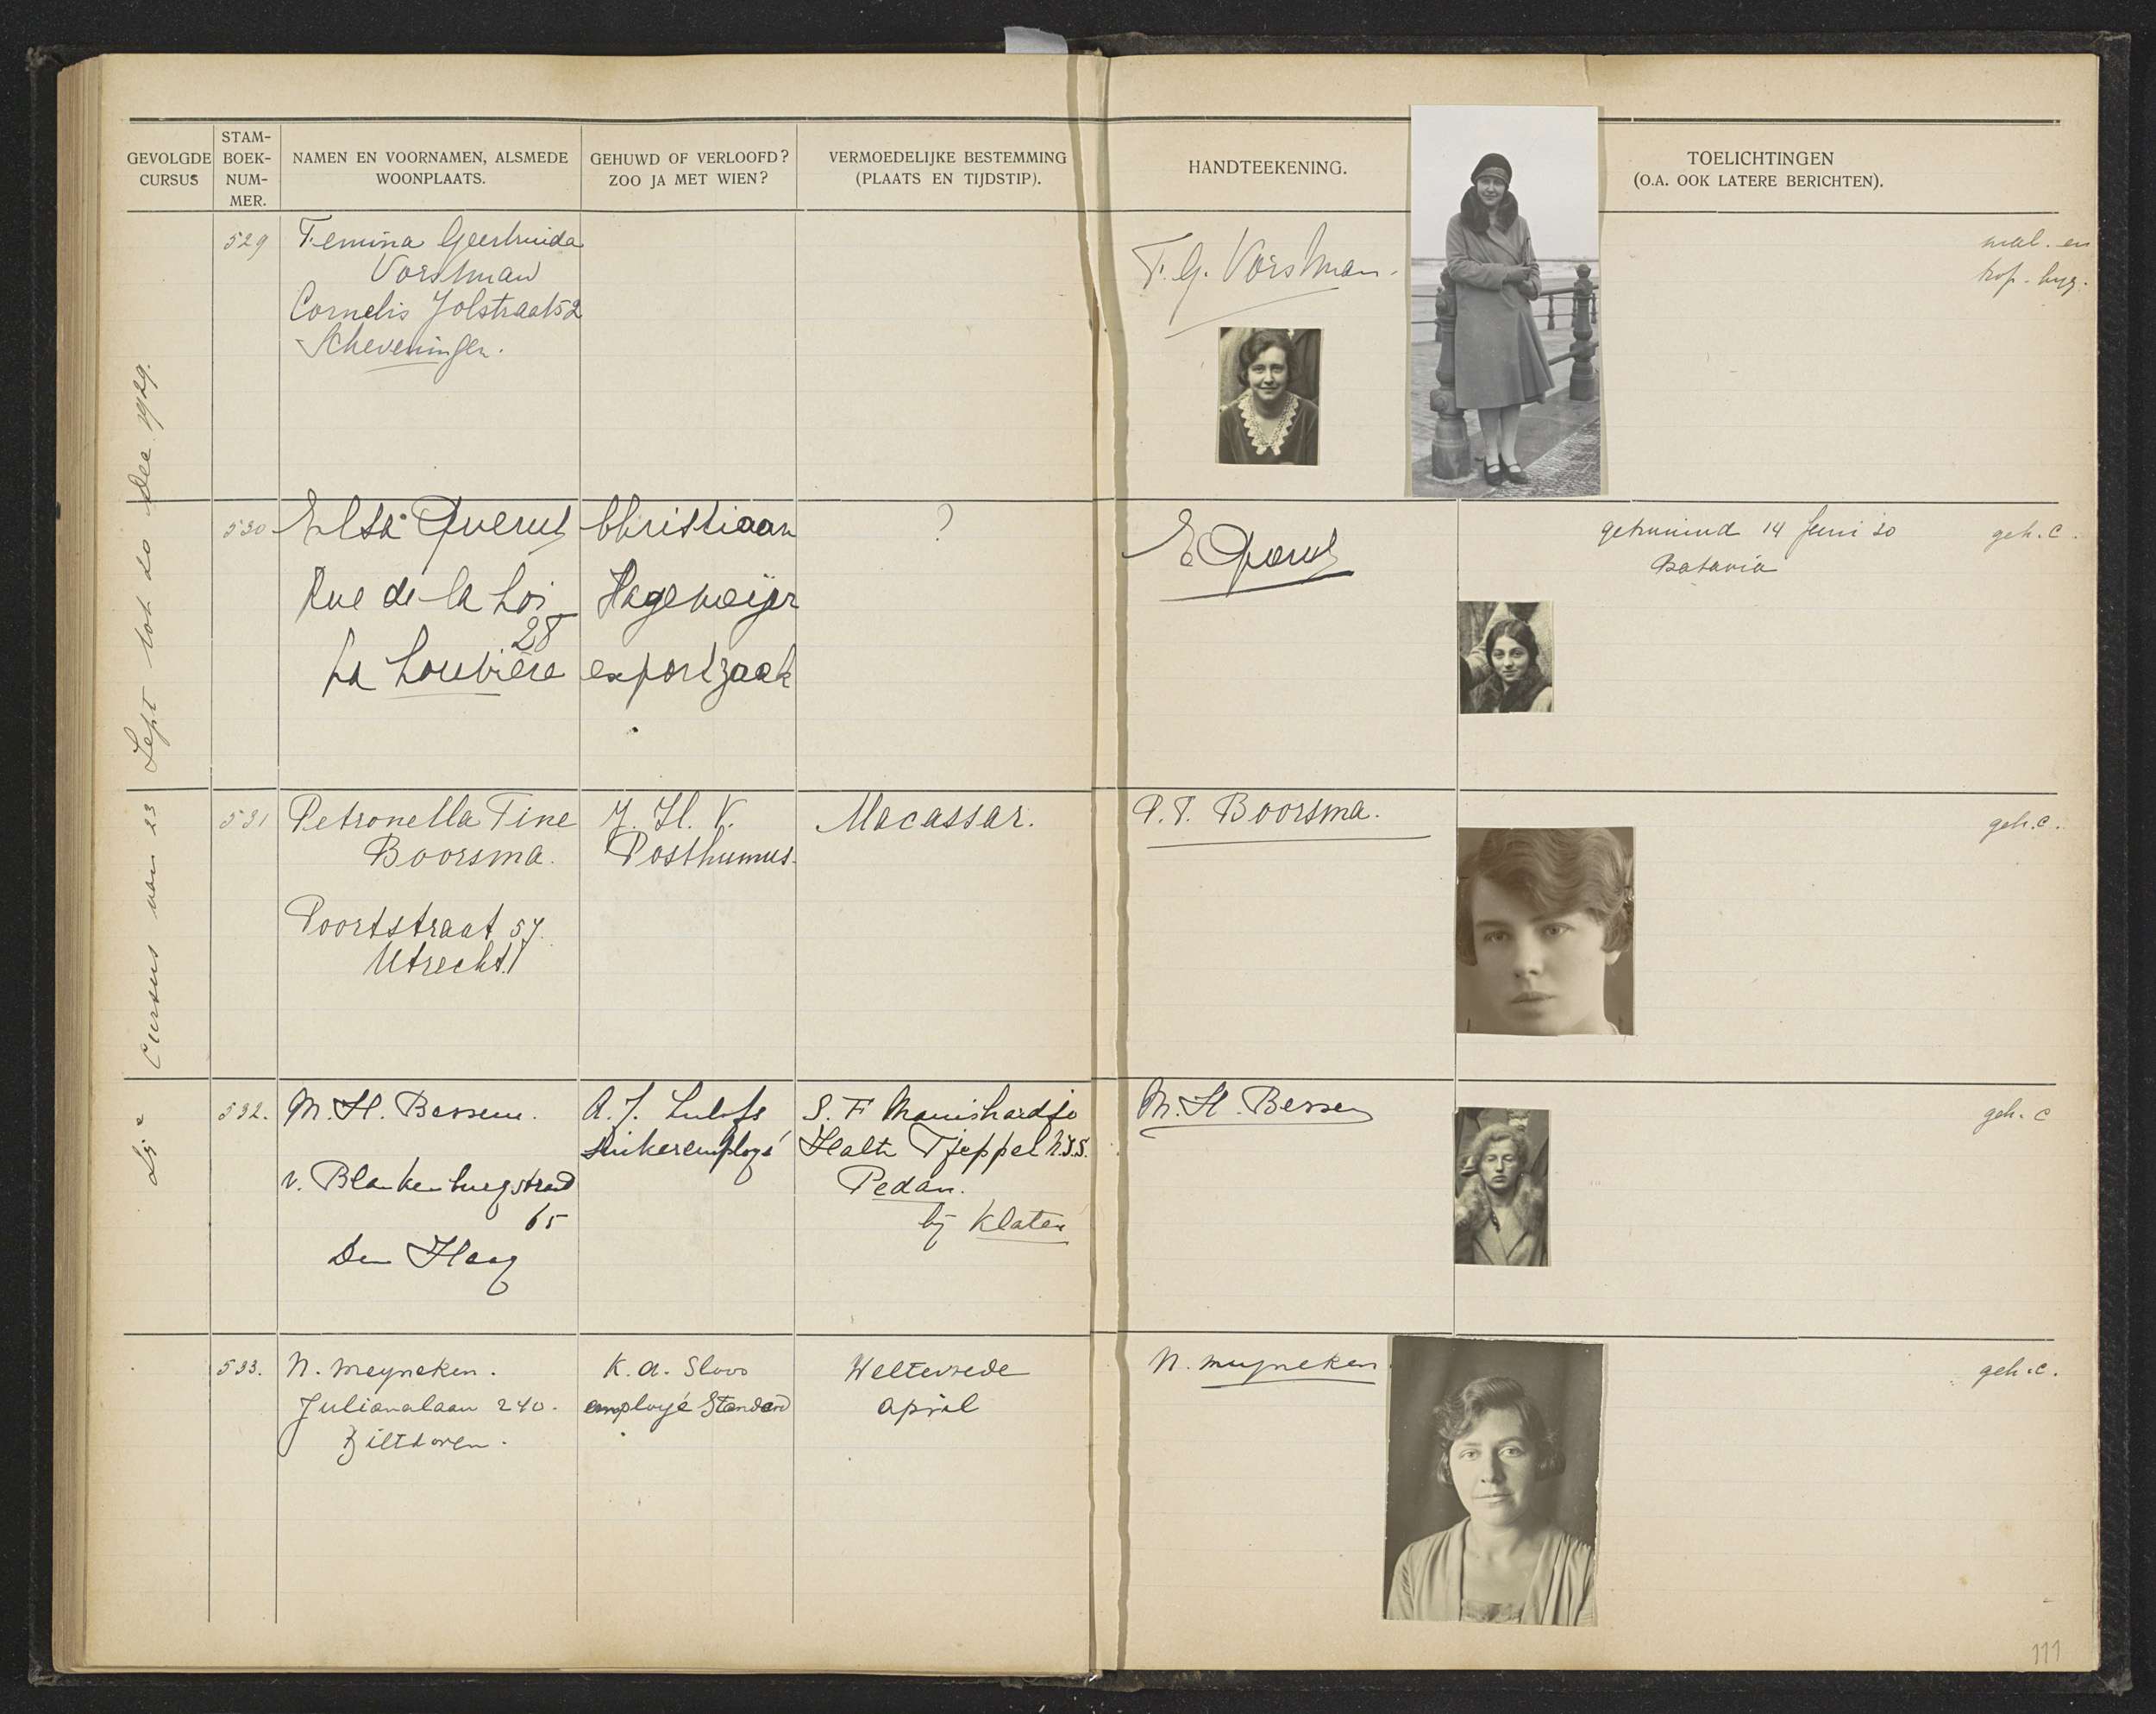 GEVOLGDE CURSUS
STAM-BOEK-NUM-MER.
NAMEN EN VOORNAMEN, ALSMEDE WOONPLAATS.
GEHUWD OF VERLOOFD? ZOO JA MET WIEN?
VERMOEDELIJKE BESTEMMING (PLAATS EN TIJDSTIP).
HANDTEEKENING.
TOELICHTINGEN
(O.A. OOK LATERE BERICHTEN).
Cursus van 23 Sept tot 20 Dec. 1929.
529
Femina Geertruida
Vorstman
Cornelis Jolstraat 52
Scheveningen.
F. G. Vorstman.
mal. en
trop. hyg.
530
Elsa Querul
Rue de la Loi
28
La Louvière
Christiaan
Hagemeijer
exportzaak
?
E Querul
getrouwd 14 Juni 30
Batavia
geh. C.
531
Petronella Tine
Boorsma.
Poortstraat 57.
Utrecht.
J. H. V.
Posthumus.
Macassar.
P. T. Boorsma.
geh. C.
532.
M. H. Bessem.
v. Blankenburgstraat
65
Den Haag
A. J. Lulofs
suikeremployé
S. F Manishardjo
Halte Tjeppel N.I.S.
Pedan.
bij Klaten
M. H. Bessem
geh. C
533.
N. Meyneken.
Julianalaan 240.
Bilthoven.
K. A. Sloos
employé Standard
Weltevrede
April
N. Meyneken
geh. C.
111